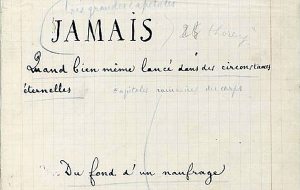 très grandes capitales
JAMAIS
Quand bien même lancé dans des circonstances
éternelles
capitales romaines du corps
Du fond d'un naufrage